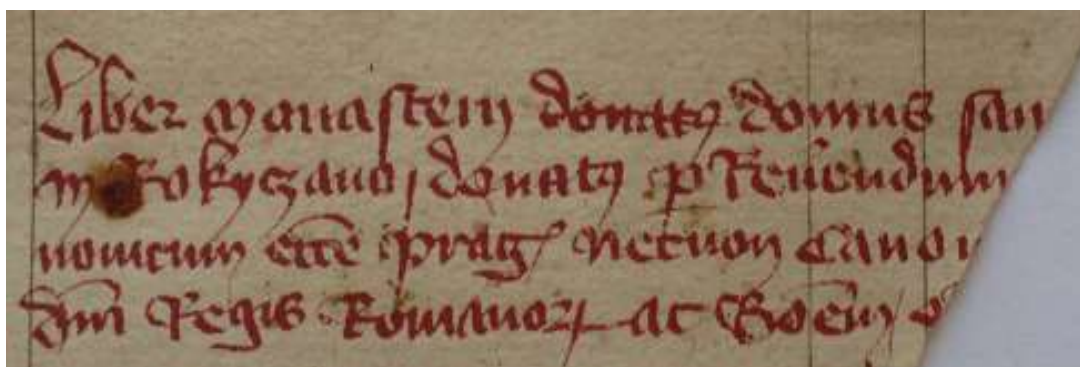 Liber Monasterij donatus domus san
in Rokyczano, donatus p Reuendum
nomium eccē prag necnon Cano
dni Regis Romanor ac Boem